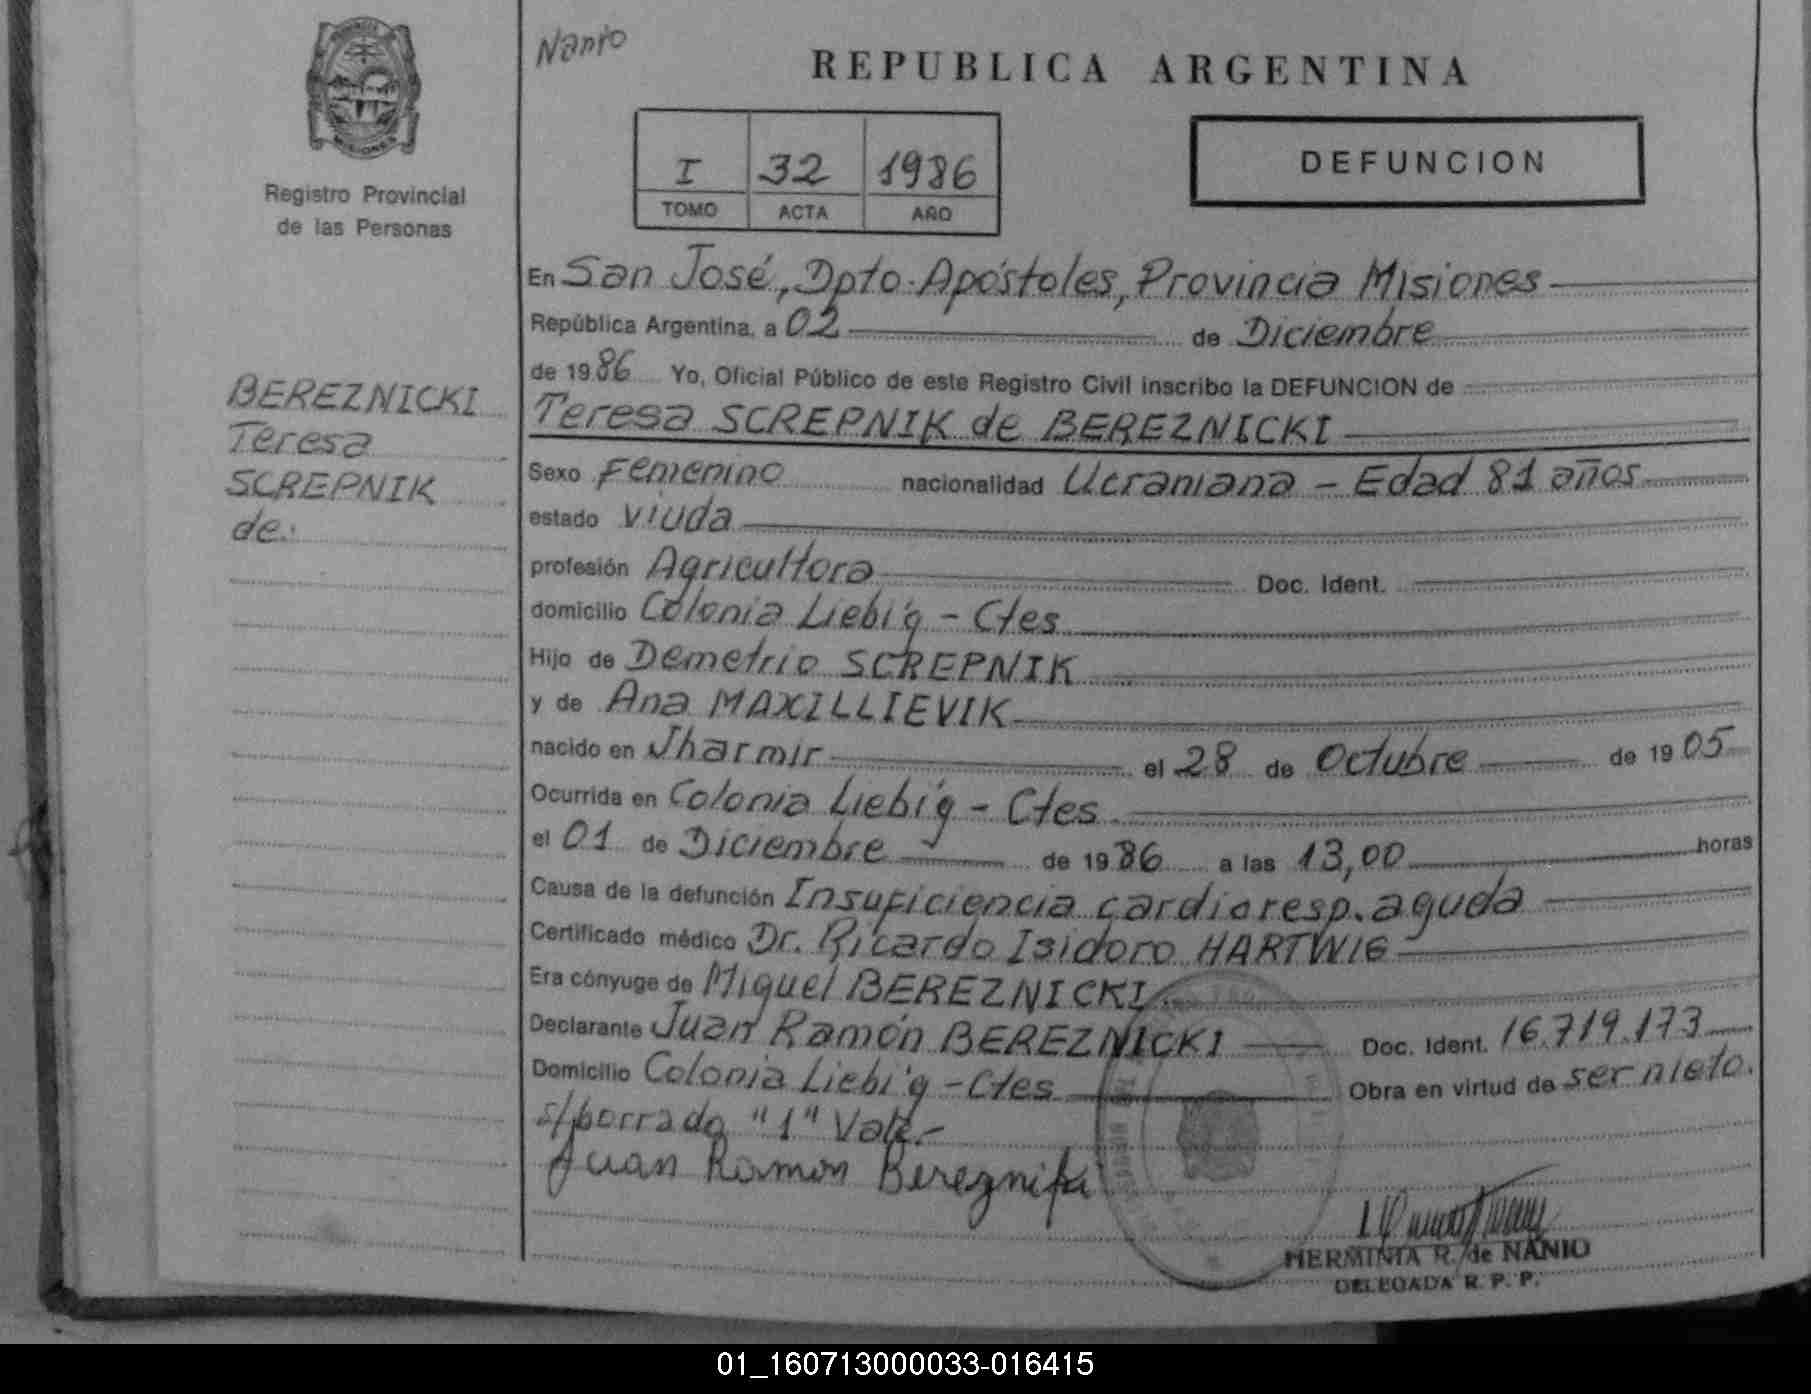 Nanio
REPUBLICA ARGENTINA
PROVINCIA
MISIONES
Registro Provincial
de las Personas
I 32 1986
TOMO ACTA AÑO
DEFUNCION
BEREZNICKI
Teresa
SCREPNIK
de:
En San José, Dpto. Apóstoles, Provincia Misiones
República Argentina, a 02 de Diciembre
de 1986 Yo, Oficial Público de este Registro Civil inscribo la DEFUNCION de
Teresa SCREPNIK de BEREZNICKI
Sexo Femenino nacionalidad Ucraniana - Edad 81 años
estado viuda
profesión Agricultora Doc. Ident.
domicilio Colonia Liebig - Ctes
Hijo de Demetrio SCREPNIK
y de Ana MAXILLIEVIK
nacido en Jharmir el 28 de Octubre de 1905
Ocurrida en Colonia Liebig - Ctes
el 01 de Diciembre de 1986 a las 13,00 horas
Causa de la defunción Insuficiencia cardioresp. aguda
Certificado médico Dr. Ricardo Isidoro HARTWIG
Era cónyuge de Miguel BEREZNICKI
Declarante Juan Ramón BEREZNICKI Doc. Ident. 16.719.173
Domicilio Colonia Liebig - Ctes Obra en virtud de ser nieto.
s/borrado "1" Vale-
Juan Ramon
HERMINIA R. de NANIO
DELEGADA R. P. P.
01_160713000033-016415